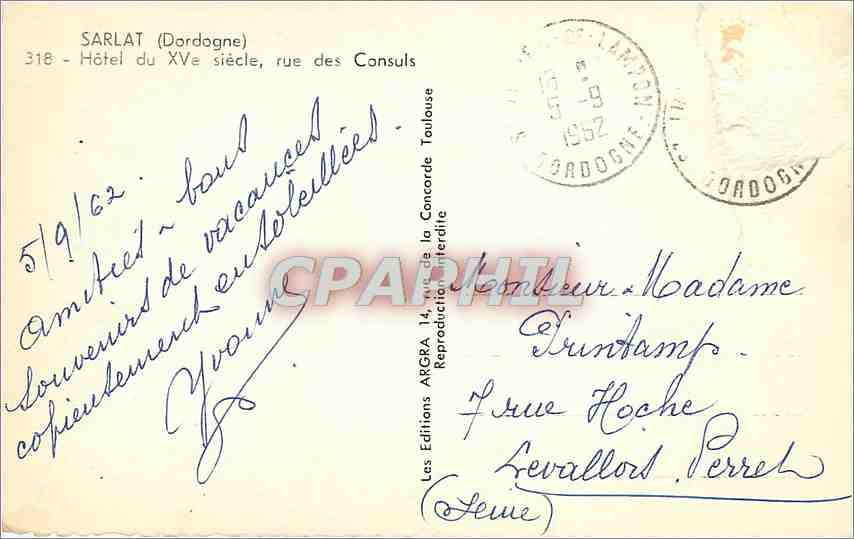 SARLAT (Dordogne)
318 - Hôtel du XVe siècle, rue des Consuls
5/9/62.
amitiés ~ bons
souvenirs de vacances
copieusement ensoleillées.
Yvonne
Les Editions ARGRA 14, rue de la Concorde Toulouse
Reproduction interdite
LAMPON
13 *
5 -9
1962
DORDOGNE
DORDOGN
CPAPHIL
Monsieur - Madame
Printamp.
7 rue Hoche
Levallois Perret
(Seine)